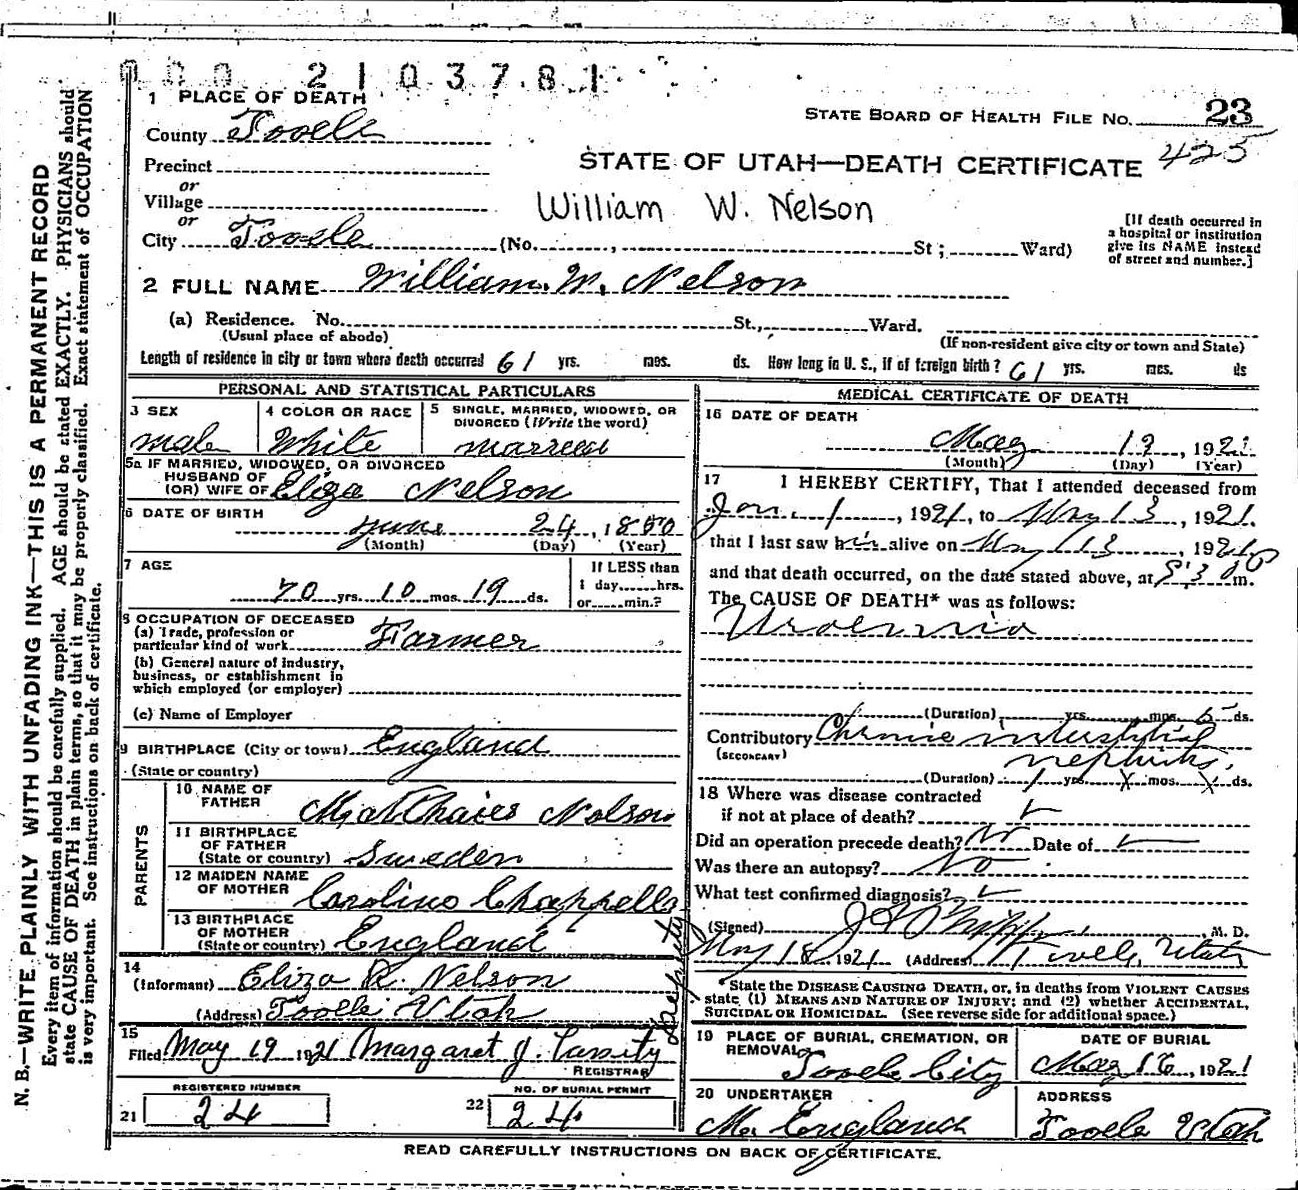 000 2103781
1 PLACE OF DEATH
STATE BOARD OF HEALTH FILE NO. 23
County Tooele
425
Precinct
STATE OF UTAH—DEATH CERTIFICATE
or
Village
William W. Nelson
or
City Tooele (No. , St; Ward)
[If death occurred in
a hospital or institution
give its NAME instead
of street and number.]
2 FULL NAME William W. Nelson
(a) Residence. No. St., Ward.
(Usual place of abode) (If non-resident give city or town and State)
Length of residence in city or town where death occurred 61 yrs. mos. ds. How long in U. S., if of foreign birth? 61 yrs. mos. ds
PERSONAL AND STATISTICAL PARTICULARS
3 SEX
male
4 COLOR OR RACE
White
5 SINGLE, MARRIED, WIDOWED, OR
DIVORCED (Write the word)
married
5a IF MARRIED, WIDOWED, OR DIVORCED
HUSBAND OF
(OR) WIFE OF Eliza Nelson
6 DATE OF BIRTH
June 24, 1850
(Month) (Day) (Year)
7 AGE
70 yrs. 10 mos. 19 ds.
If LESS than
1 day......hrs.
or......min.?
8 OCCUPATION OF DECEASED
(a) Trade, profession or
particular kind of work Farmer
(b) General nature of industry,
business, or establishment in
which employed (or employer)
(c) Name of Employer
9 BIRTHPLACE (City or town) England
(State or country)
PARENTS
10 NAME OF
FATHER Nelson
11 BIRTHPLACE
OF FATHER
(State or country) Sweden
12 MAIDEN NAME
OF MOTHER Caroline Chappelle
13 BIRTHPLACE
OF MOTHER
(State or country) England
14
(Informant) Eliza R. Nelson
(Address) Tooele Utah
15
Filed May 19 1921 Margaret J. Cassity
Deputy
REGISTRAR
REGISTERED NUMBER
21 24
NO. OF BURIAL PERMIT
22 24
MEDICAL CERTIFICATE OF DEATH
16 DATE OF DEATH
May 13, 1921
(Month) (Day) (Year)
17 I HEREBY CERTIFY, That I attended deceased from
Jan. 1, 1921, to May 13, 1921.
that I last saw him alive on May 13, 1921
and that death occurred, on the date stated above, at 8:30 Pm.
The CAUSE OF DEATH* was as follows:
Uraemia
(Duration) yrs. mos. 5 ds.
Contributory Chronic interstitial
(SECONDARY) nephritis.
(Duration) 1 yrs. X mos. X ds.
18 Where was disease contracted
if not at place of death?
Did an operation precede death? No Date of
Was there an autopsy? No.
What test confirmed diagnosis?
(Signed) , M. D.
May 18, 1921 (Address) Tooele, Utah
*State the DISEASE CAUSING DEATH, or, in deaths from VIOLENT CAUSES
state (1) MEANS AND NATURE OF INJURY; and (2) whether ACCIDENTAL,
SUICIDAL OR HOMICIDAL. (See reverse side for additional space.)
19 PLACE OF BURIAL, CREMATION, OR
REMOVAL
Tooele City
DATE OF BURIAL
May 16, 1921
20 UNDERTAKER
M. England
ADDRESS
Tooele Utah
READ CAREFULLY INSTRUCTIONS ON BACK OF CERTIFICATE.
N. B.—WRITE PLAINLY WITH UNFADING INK—THIS IS A PERMANENT RECORD
Every item of information should be carefully supplied. AGE should be stated EXACTLY. PHYSICIANS should
state CAUSE OF DEATH in plain terms, so that it may be properly classified. Exact statement of OCCUPATION
is very important. See instructions on back of certificate.